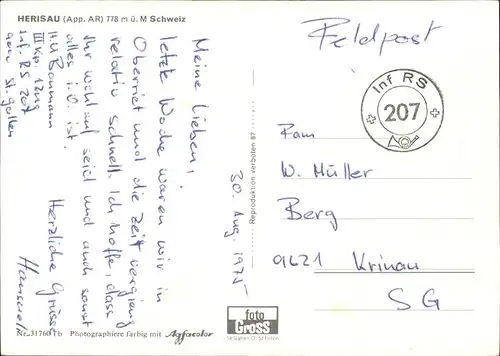 HERISAU (App. AR) 778 m ü. M Schweiz
Feldpost
Inf RS
207
Meine Lieben,
letzte Woche waren wir in
Oberriet und die Zeit verging
relativ schnell. Ich hoffe, dass
Ihr wohl auf seid und auch sonst
alles i.O. ist.
Herzliche Grüsse
H.U. Baumann
III Kp 1. Zug
Inf. RS 207
9000 St. Gallen
30. Aug. 1975
Reproduktion verboten 87
Fam
W. Müller
Berg
9621 Krinau
SG
foto
GROSS
St Gallen
Nr. 31760 Tb Photographiere farbig mit Agfacolor